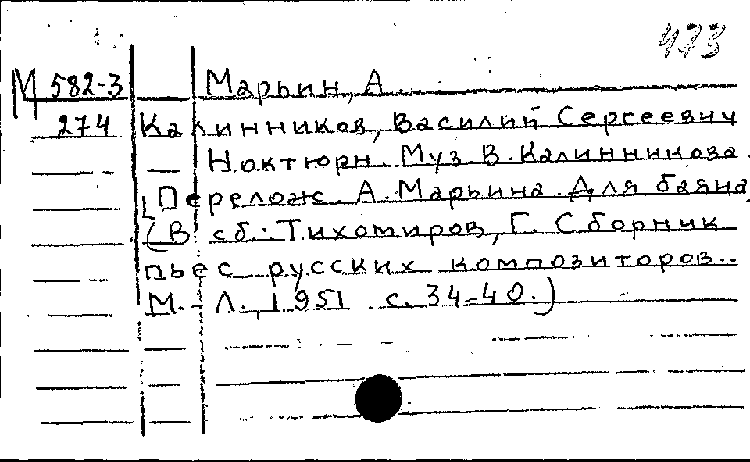 473
М 582-3 Марьин, А.
274 Калинников, Василий Сергеевич
Ноктюрн. Муз. В. Калинникова.
[Перелож. А. Марьина. Для баяна]
(В сб.: Тихомиров, Г. Сборник
пьес русских композиторов..
М.-Л., 1951 с. 34-40.)